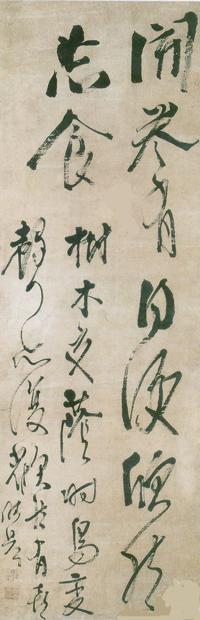 開卷有得便欣然
忘食樹木交蔭時鳥變
聲亦復歡然有喜